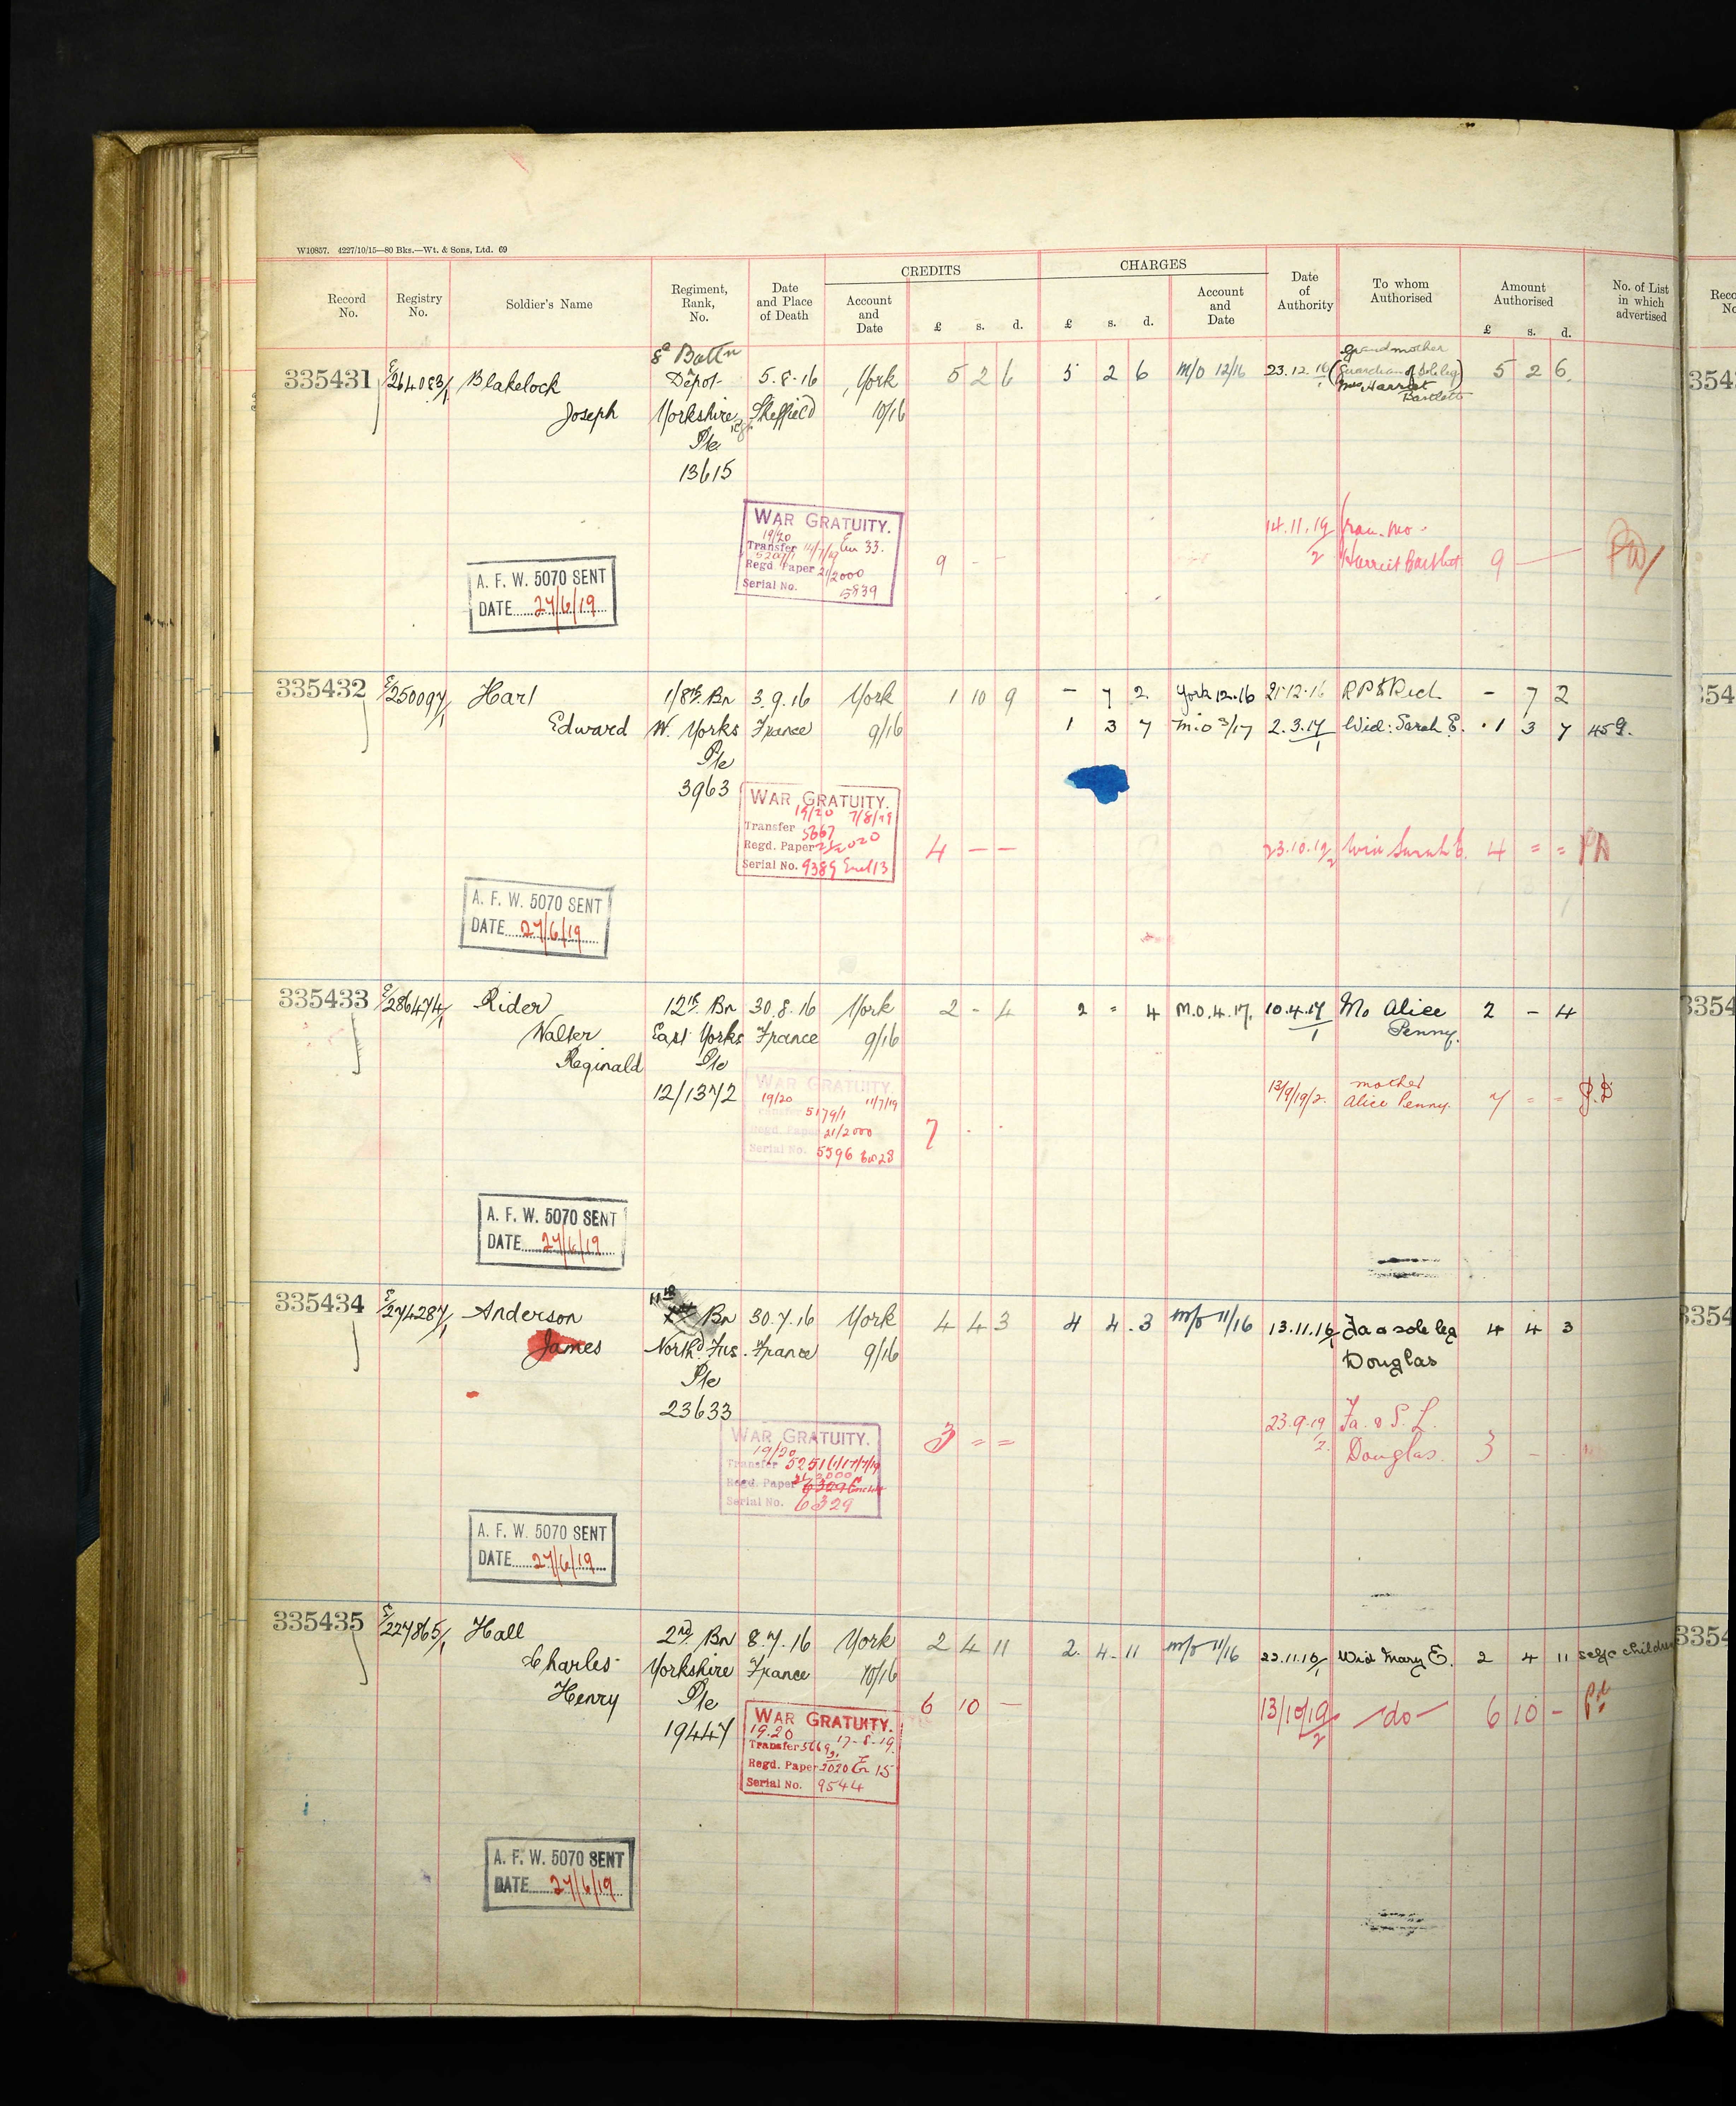 W10857. 4227/10/15—80 Bks.—Wt. & Sons, Ltd. 69
Record No. Registry No. Soldier's Name Regiment, Rank, No. Date and Place of Death CREDITS Account and Date £ s. d. CHARGES £ s. d. Account and Date Date of Authority To whom Authorised Amount Authorised £ s. d. No. of List in which advertised
8th Battn Grandmother
335431 E/264083/1 Blakelock Depot 5.8.16 York 5 2 6 5 2 6 M/O 12/16 23.12.16/1 (Guardian of sole leg) 5 2 6.
Joseph Yorkshire Sheffield 10/16 Mrs Harriet Bartlett
Pte
13615
WAR GRATUITY. 14.11.19/2 Gran. Mo.
19/20
Transfer 5207/1 11/7/19 En 33. 9 - - Harriet Bartlet 9 —
Regd Paper 21/2000
Serial No. 5939
A. F. W. 5070 SENT
DATE 27/6/19
335432 E/250097/1 Harl 1/8th Bn 3.9.16 York 1 10 9 - 7 2. York 12.16 21.12.16 R P & Rich - 7 2
Edward W. Yorks France 9/16 1 3 7 M.O 3/17 2.3.17/1 Wid: Sarah E. 1 3 7 459.
Pte
3963
WAR GRATUITY.
19/20 7/8/19
Transfer 5667
Regd. Paper 21/2020 4 - - 23.10.19/2 Wid Sarah E. 4 = =
Serial No. 9389 Encl 13
A. F. W. 5070 SENT
DATE 27/6/19
335433 E/286474/1 Rider 12th Bn 30.8.16 York 2 - 4 2 = 4 M.O.4.17. 10.4.17/1 Mo Alice 2 - 4
Walter East Yorks France 9/16 Penny.
Reginald Pte
12/1372
WAR GRATUITY. 13/9/19/2. mother
19/20 11/7/19 Alice Penny. 7 = =
Transfer 5179/1
Regd. Paper 21/2000 7 . .
Serial No. 5596 En 28
A. F. W. 5070 SENT
DATE 27/6/19
335434 E/274287/1 Anderson 11th Bn 30.7.16 York 4 4 3 4 4 . 3 M/O 11/16 13.11.16/1 Fa & sole leg 4 4 3
James North'd Fus. France 9/16 Douglas
Pte
23633
WAR GRATUITY. 3 = = 23.9.19/2. Fa. & S. L.
19/20 Douglas. 3 -
Transfer 5251/1/17/7/19
Regd. Paper 21/2000
Serial No. 6329
A. F. W. 5070 SENT
DATE 27/6/19
335435 E/227865/1 Hall 2nd Bn 8.7.16 York 2 4 11 2. 4. 11 M/O 11/16 22.11.16/1 Wid Mary E. 2 4 11 self & children
Charles Yorkshire France 10/16
Henry Pte 6 10 — 13/10/19/2 —do— 6 10 -
19447
WAR GRATUITY.
19.20 17-8-19.
Transfer 5669
Regd. Paper 21/2020 En 15
Serial No. 9544
A. F. W. 5070 SENT
DATE 27/6/19